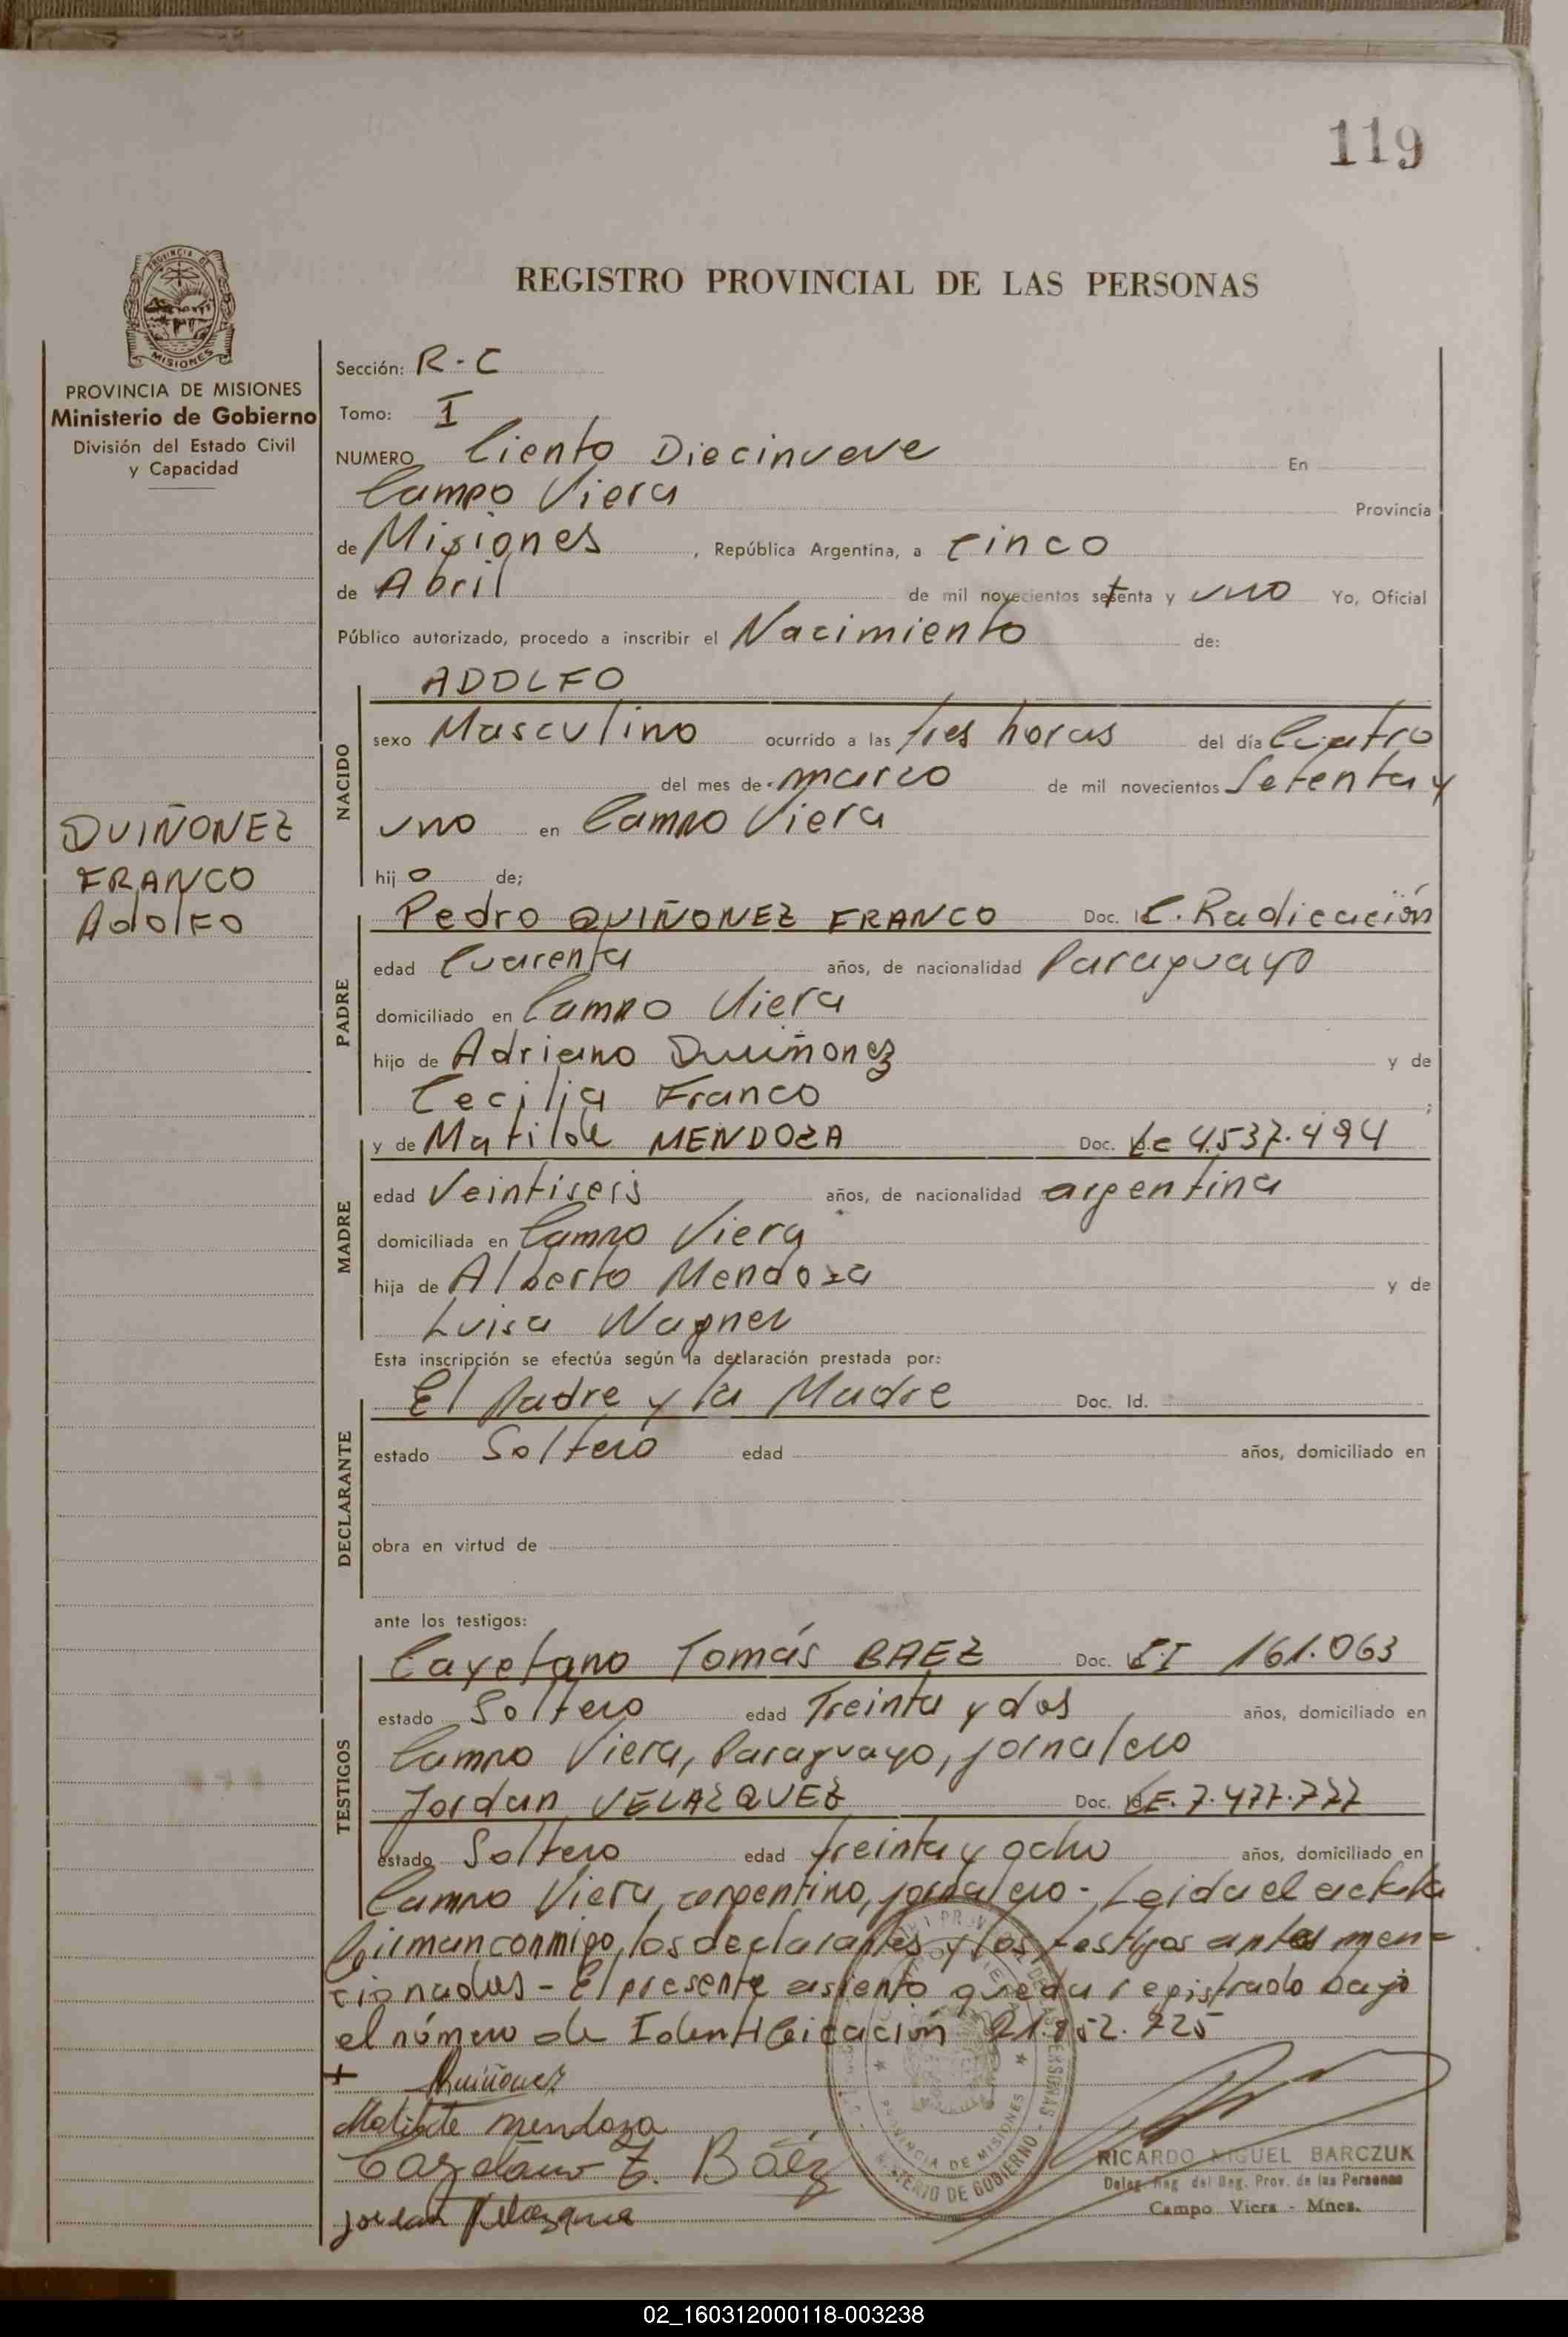 119
REGISTRO PROVINCIAL DE LAS PERSONAS
PROVINCIA DE MISIONES
Ministerio de Gobierno
División del Estado Civil
y Capacidad
QUIÑONEZ
FRANCO
AdolFO
Sección: R-C
Tomo: I
NUMERO Ciento Diecinueve En
Campo Viera Provincia
de Misiones, República Argentina, a cinco
de Abril de mil novecientos setenta y uno Yo, Oficial
Público autorizado, procedo a inscribir el Nacimiento de:
NACIDO
ADOLFO
sexo Masculino ocurrido a las tres horas del día Cuatro
del mes de marzo de mil novecientos Setenta y
uno en Campo Viera
hijo de;
PADRE
Pedro QUIÑONEZ FRANCO Doc. C. Radicación
edad Cuarenta años, de nacionalidad Paraguayo
domiciliado en Campo Viera
hijo de Adriano Quiñonez y de
Cecilia Franco;
MADRE
y de Matilde MENDOZA Doc. LC 4.537.494
edad Veintiseis años, de nacionalidad argentina
domiciliada en Campo Viera
hija de Alberto Mendoza y de
Luisa Wagner
Esta inscripción se efectúa según la declaración prestada por:
DECLARANTE
El Padre y la Madre Doc. Id.
estado Soltero edad años, domiciliado en
obra en virtud de
ante los testigos:
TESTIGOS
Cayetano Tomás BAEZ Doc. CI 161.063
estado Soltero edad Treinta y dos años, domiciliado en
Campo Viera, Paraguayo, jornalero
Jordan VELAZQUEZ Doc. LE. 7.477.777
estado Soltero edad treinta y ocho años, domiciliado en
Campo Viera, argentino, jornalero - Leida el acta la
firman conmigo, los declarantes y los testigos antes men=
cionados - El presente asiento queda registrado bajo
el número de Identificación 21.852.225
+ Quiñonez
Matilde mendoza
Cayetano T. Báez
Jordan Velazquez
PROVINCIA DE MISIONES
MINISTERIO DE GOBIERNO
RICARDO MIGUEL BARCZUK
Deleg. Reg. del Reg. Prov. de las Personas
Campo Viera - Mnes.
02_160312000118-003238